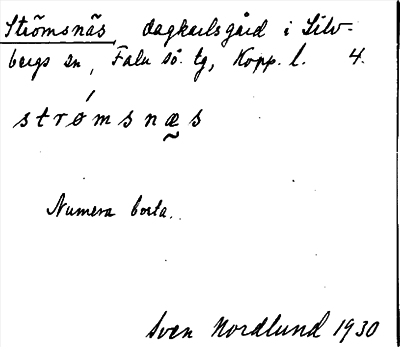 Strömsnäs, dagkarlsgård i Silv-
bergs sn, Falu sö. tg, Kopp. l. 4.
strǿmsnæ̰s
Numera borta.
Sven Nordlund 1930